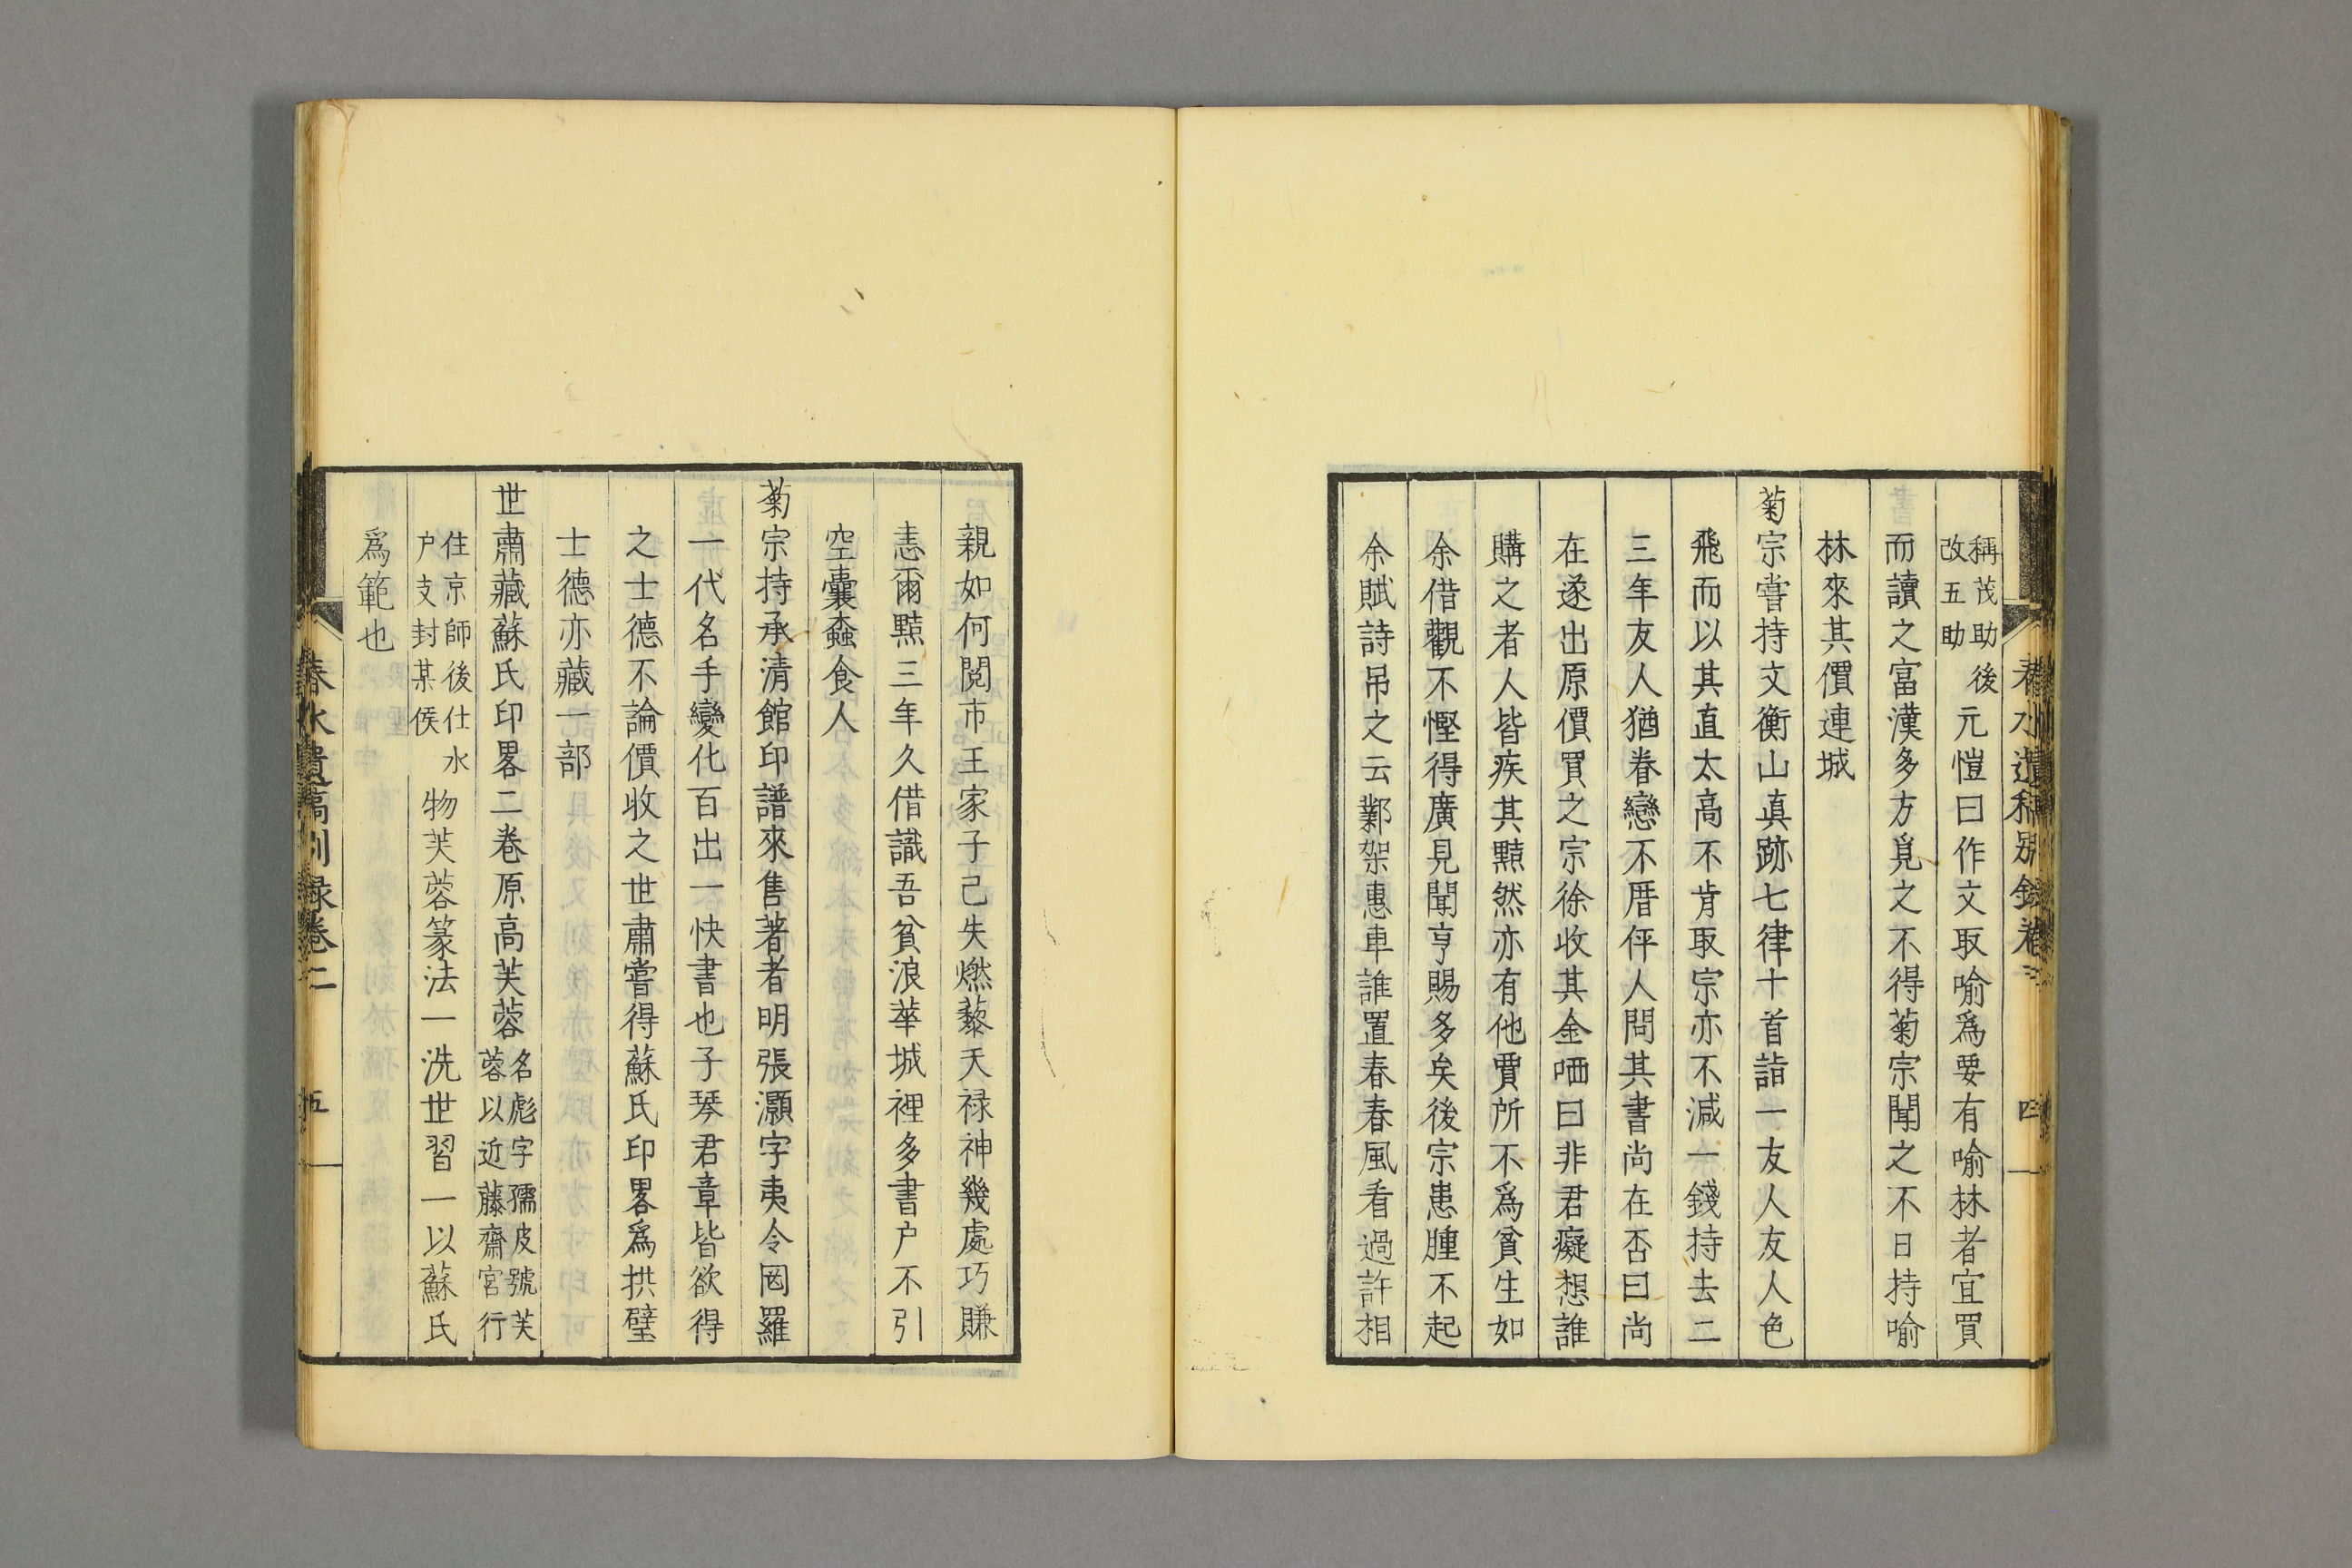 稱茂助後
改五助
元愷曰作文取喻爲要有喻林者宜買
而讀之富漢多方覓之不得菊宗聞之不日持喻
林來其價連城
菊宗嘗持文衡山真跡七律十首詣一友人友人色
飛而以其直太高不肯取宗亦不減一錢持去二
三年友人猶眷戀不厝伻人問其書尚在否曰尚
在遂出原價買之宗徐收其金哂曰非君癡想誰
購之者人皆疾其黠然亦有他賈所不爲貧生如
余借觀不慳得廣見聞亨賜多矣後宗患腫不起
余賦詩吊之云鄴架惠車誰置春春風看過許相
親如何閲市王家子己失燃藜天禄神幾處巧賺
恚爾黠三年久借識吾貧浪華城裡多書户不引
空囊螙食人
菊宗持承清館印譜來售著者明張灝字夷令囡羅
一代名手變化百出一快書也子琴君章皆欲得
之士德不論價收之世肅嘗得蘇氏印畧爲拱璧
士德亦藏一部
世肅藏蘇氏印畧二卷原高芙蓉
名彪字孺皮號芙
蓉以近藤齋宮行
住京師後仕水
户支封某侯
物芙蓉篆法一洗世習一以蘇氏
爲範也
春水遺稿別録卷二
五